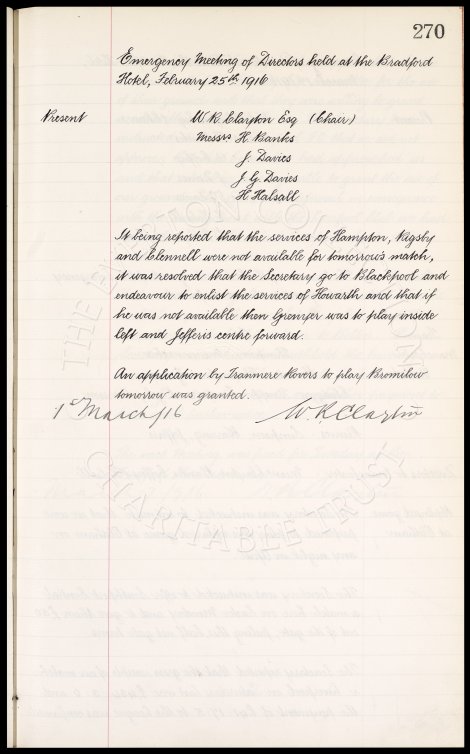 270
Emergency Meeting of Directors held at the Bradford
Hotel, February 25th 1916
Present W. R. Clayton Esq (Chair)
Messrs H. Banks
J. Davies
J. G. Davies
H Halsall
It being reported that the services of Hampton, Rigsby
and Clennell were not available for tomorrow's match,
it was resolved that the Secretary go to Blackpool and
endeavour to enlist the services of Howarth and that if
he was not available then Grenyer was to play inside
left and Jefferis centre forward.
An application by Tranmere Rovers to play Bromilow
tomorrow was granted.
1st March/16 W R Clayton
CHARITABLE TRUST